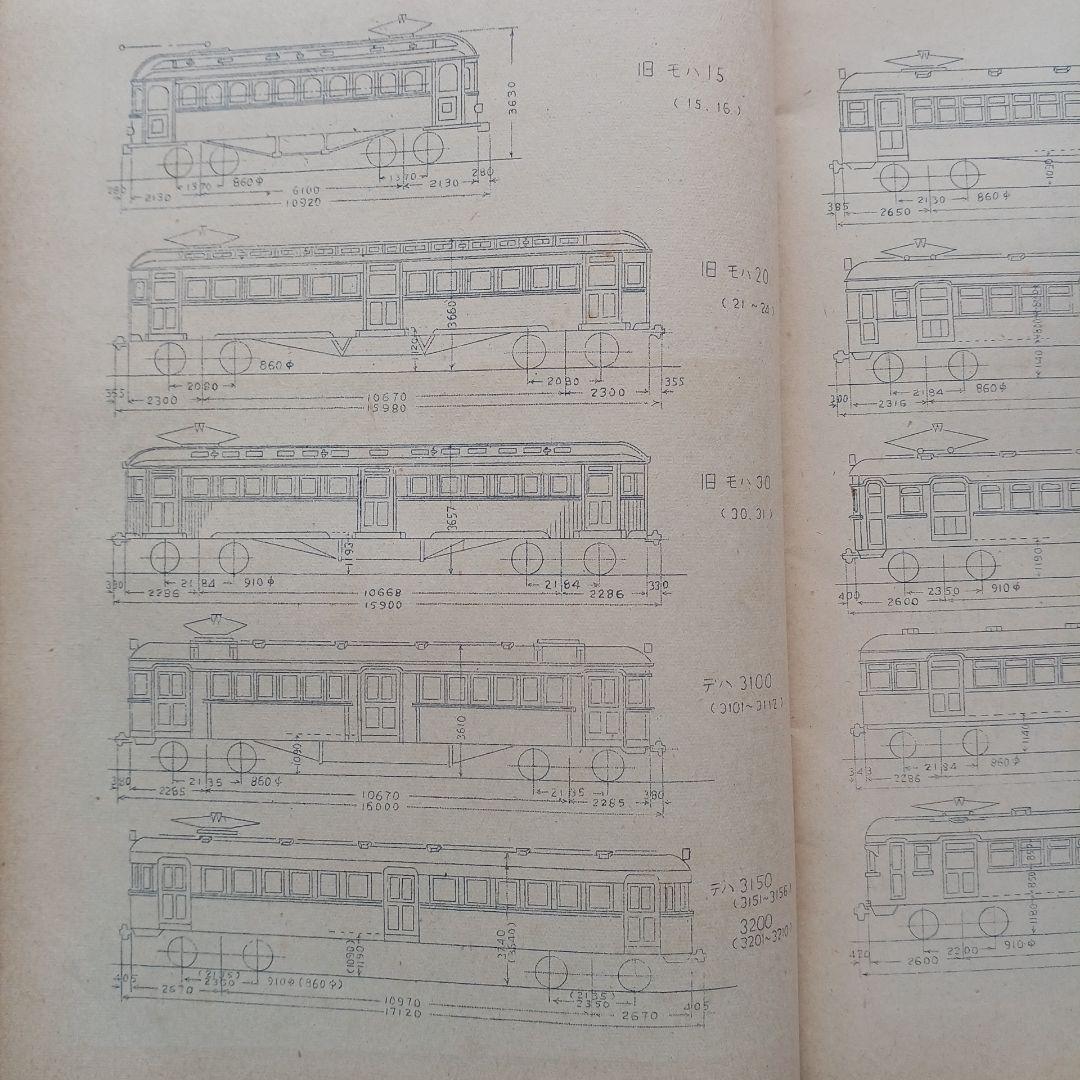 旧 モハ15
(15.16)
3630
280
2130
1370
860φ
6100
1370
2130
280
10920
旧 モハ20
(21~24)
3660
1120
860φ
355
2300
2080
10670
2080
2300
355
15980
旧 モハ30
(30.31)
3657
1193
2286
2184
910φ
10668
2184
2286
330
15900
デハ 3100
(3101~3112)
3610
1090
380
2285
2135
860φ
10670
2135
2285
380
16000
デハ 3150
(3151~3156)
3200
(3201~3210)
(1090)
1190
405
2670
(2135)
2350
910φ(860φ)
10970
(2135)
2350
2670
405
17120
385
2650
2130
860φ
1050
2184
860φ
1140
400
2600
2350
910φ
1190
343
2286
2184
860φ
1140
2600
2200
910φ